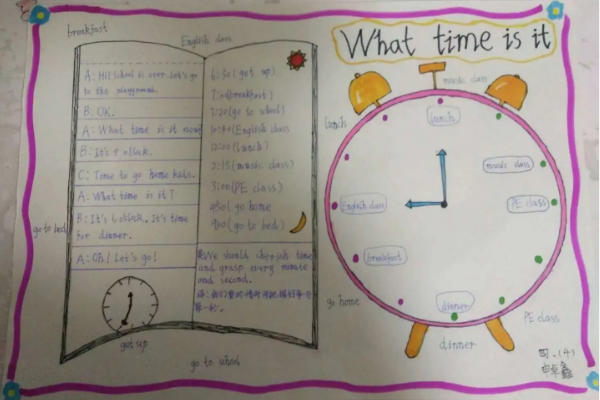 What time is it
breakfast
English class
A: Hi! School is over. Let's go
to the playground.
B: OK.
A: What time is it now
B: It's
C: Time to go home kids.
A: What time is it?
B: It's 6 o'clock. It's time
for dinner.
A: Oh! Let's go!
(get up)
(breakfast)
7:20(go to school)
(English class
12:00(lunch)
2:15(music class)
3:00(PE class)
(go home
9:00(go to bed)
We should cherish time
and grasp every minute
and second.
go to bed
get up
go to school
music class
lunch
lunch
music class
PE class
English class
breakfast
dinner
go home
PE class
dinner
四.(4)